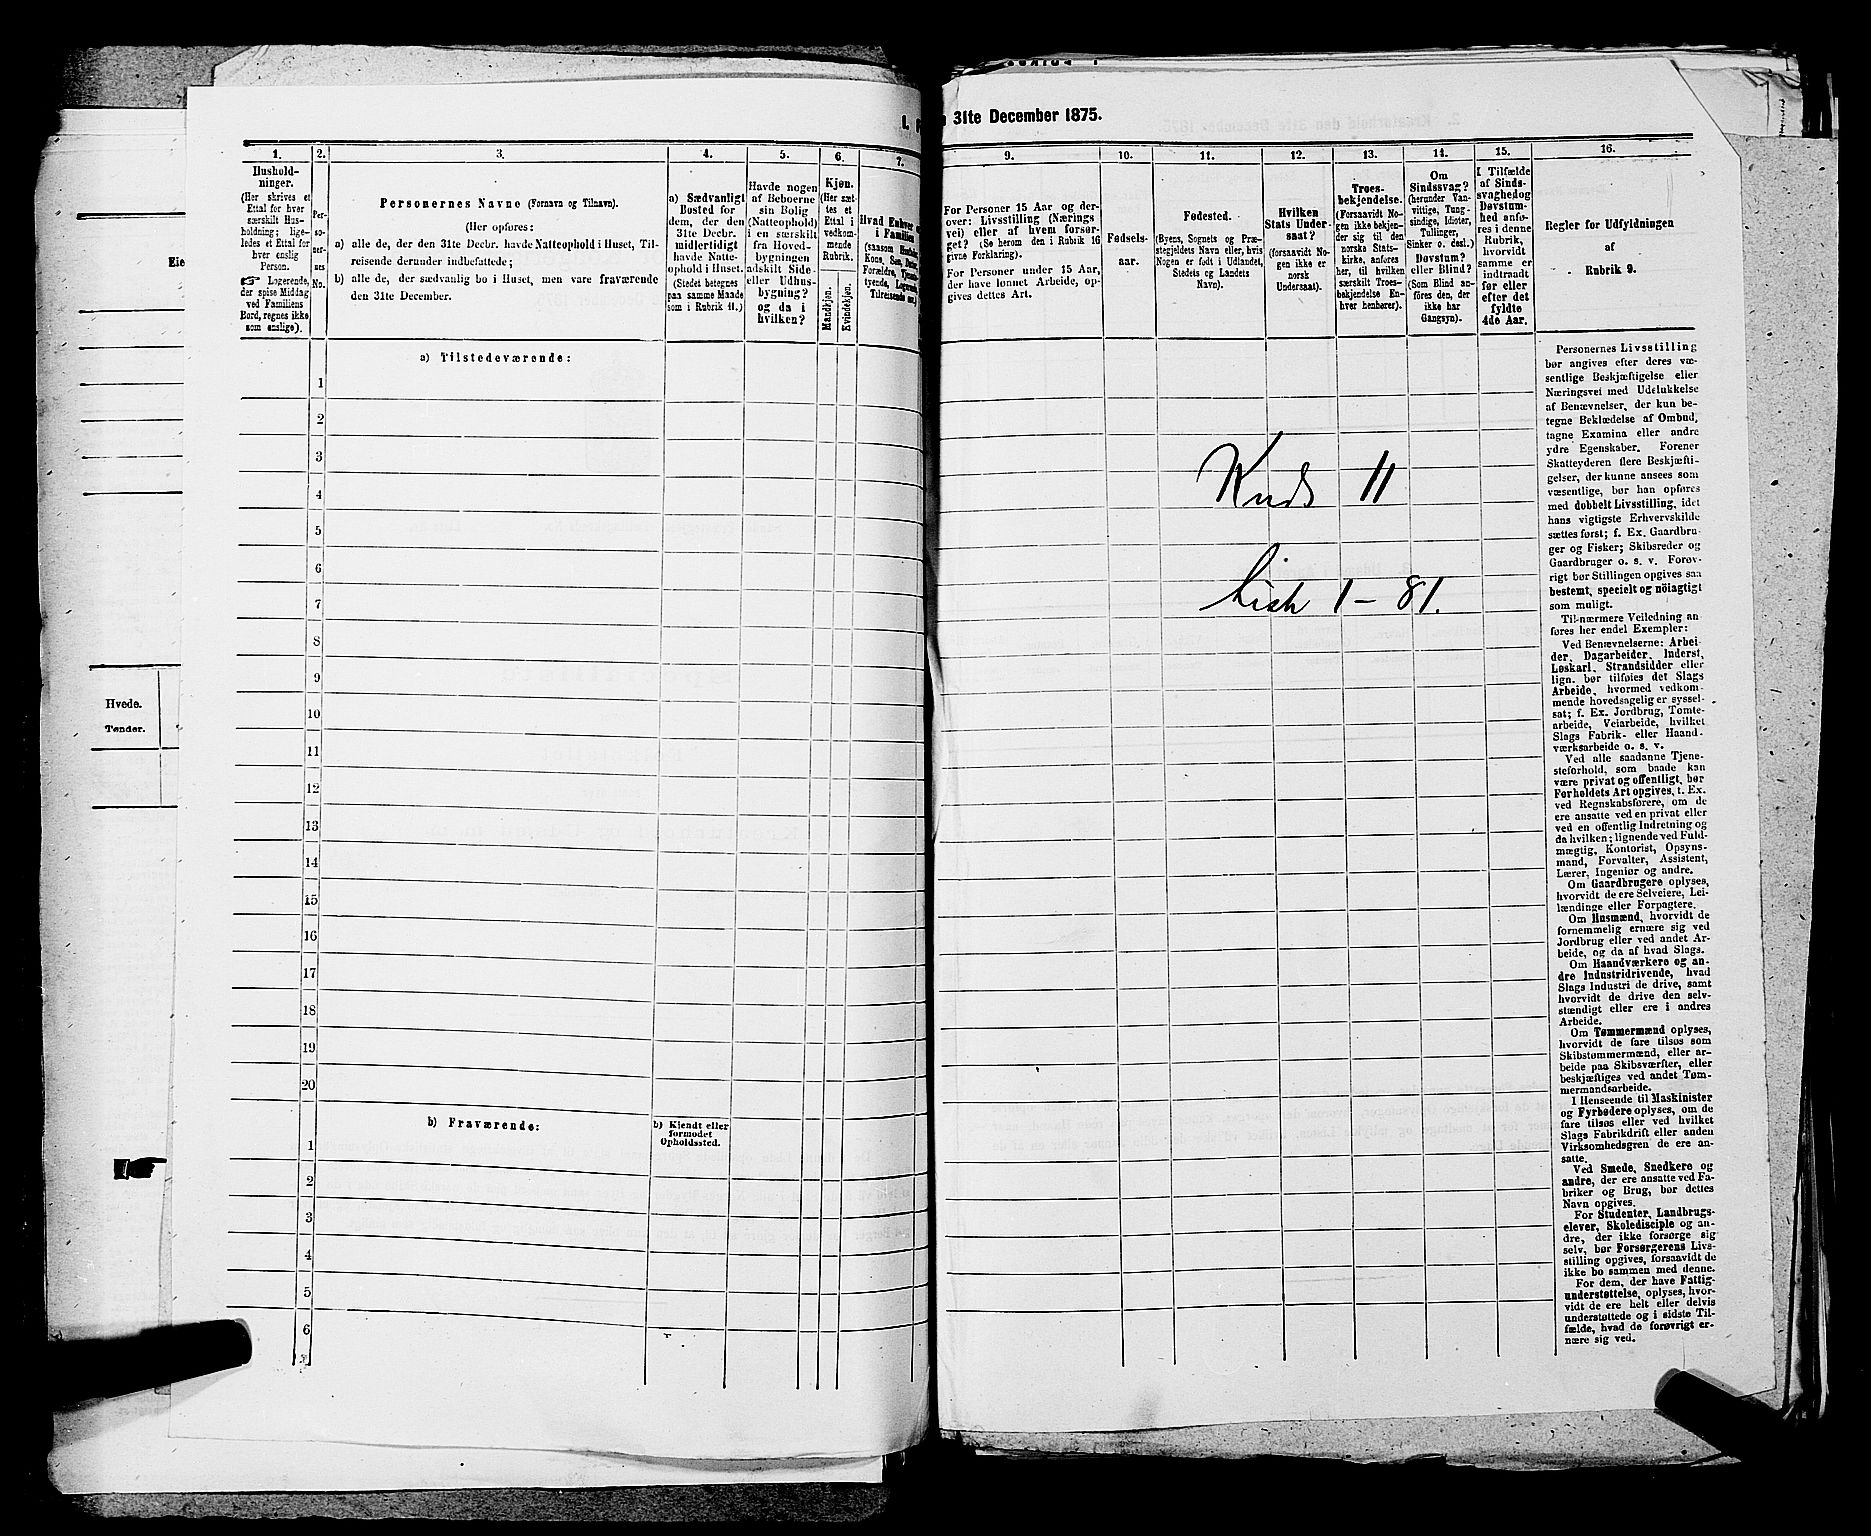 31te December 1875.
1.
2.
3.
4.
5.
6.
7.
9.
10.
11.
12.
13.
14.
15.
16.
Hushold-
ninger.
(Her skrives et
Ettal for hver
særskilt Hus-
holdning; lige-
ledes et Ettal for
hver enslig
Person.
Logerende,
der spise Middag
ved Familiens
Bord, regnes ikke
som enslige).
Per-
so-
ner-
nes
No.
Personernes Navne (Fornavn og Tilnavn).
(Her opføres:
a) alle de, der den 31te Decbr. havde Natteophold i Huset, Til-
reisende derunder indbefattede;
b) alle de, der sædvanlig bo i Huset, men vare fraværende
den 31te December.
a) Sædvanligt
Bosted for
dem, der den
31te Decbr.
midlertidigt
havde Natte-
ophold i Huset.
(Stedet betegnes
paa samme Maade
som i Rubrik 11.)
Havde nogen
af Beboerne
sin Bolig
(Natteophold)
i en særskilt
fra Hoved-
bygningen
adskilt Side-
eller Udhus-
bygning?
og da i
hvilken?
Kjøn.
(Her sæt-
tes et
Ettal i
vedkom-
mende
Rubrik.
Mandkjøn.
Kvindekjøn.
For Personer 15 Aar og der-
over: Livsstilling (Nærings
vei) eller af hvem forsør-
get? (Se herom den i Rubrik 16
givne Forklaring).
For Personer under 15 Aar,
der have lønnet Arbeide, op-
gives dettes Art.
Fødsels-
aar.
Fødested.
(Byens, Sognets og Præ-
stegjeldets Navn eller, hvis
Nogen er født i Udlandet,
Stedets og Landets
Navn).
Hvilken
Stats Under-
saat?
(forsaavidt No-
gen ikke er
norsk
Undersaat).
Troes-
bekjendelse.
(Forsaavidt No-
gen ikke bekjen-
der sig til den
norske Stats-
kirke, anføres
her, til hvilken
særskilt Troes-
bekjendelse En-
hver henhører).
Om
Sindssvag?
(herunder Van-
vittige, Tung-
sindige, Idioter,
Tullinger,
Sinker o. desl.)
Døvstum?
eller Blind?
(Som Blind an-
føres den, der
ikke har
Gangsyn).
I Tilfælde
af Sinds-
svaghed og
Døvstum-
hed anfø-
res i denne
Rubrik,
hvorvidt
samme er
indtraadt
før eller
efter det
fyldte
4de Aar.
Regler for Udfyldningen
af
Rubrik 9.
a) Tilstedeværende:
1
2
3
4
5
6
7
8
9
10
11
12
13
14
15
16
17
18
19
20
b) Fraværende:
b) Kjendt eller
formodet
Opholdssted.
1
2
3
4
5
6
Kuds 11
List 1 – 81.
Personernes Livsstilling
bør angives efter deres væ-
sentlige Beskjæftigelse eller
Næringsvei med Udelukkelse
af Benævnelser, der kun be-
tegne Beklædelse af Ombud,
tagne Examina eller andre
ydre Egenskaber. Forener
Skatteyderen flere Beskjæfti-
gelser, der kunne ansees som
væsentlige, bør han opføres
med dobbelt Livsstilling, idet
hans vigtigste Erhvervskilde
sættes først; f. Ex. Gaardbru-
ger og Fisker; Skibsreder og
Gaardbruger o. s. v. Forøv-
rigt bør Stillingen opgives saa
bestemt, specielt og nöiagtigt
som muligt.
Til nærmere Veiledning an-
føres her endel Exempler:
Ved Benævnelserne: Arbei-
der, Dagarbeider, Inderst,
Løskarl, Strandsidder eller
lign. bør tilføies det Slags
Arbeide, hvormed vedkom-
mende hovedsagelig er syssel-
sat; f. Ex. Jordbrug, Tomte-
arbeide, Veiarbeide, hvilket
Slags Fabrik- eller Haand-
værksarbeide o. s. v.
Ved alle saadanne Tjene-
steforhold, som baade kan
være privat og offentligt, bør
Forholdets Art opgives, t. Ex.
ved Regnskabsførere, om de
ere ansatte ved en privat eller
ved en offentlig Indretning og
da hvilken; lignende ved Fuld-
mægtig, Kontorist, Opsyns-
mand, Forvalter, Assistent,
Lærer, Ingeniør og andre.
Om Gaardbrugere oplyses,
hvorvidt de ere Selveiere, Lei-
lændinge eller Forpagtere.
Om Husmænd, hvorvidt de
fornemmelig ernære sig ved
Jordbrug eller ved andet Ar-
beide, og da af hvad Slags.
Om Haandværkere og an-
dre Industridrivende, hvad
Slags Industri de drive, samt
hvorvidt de drive den selv-
stændigt eller ere i andres
Arbeide.
Om Tømmermænd oplyses,
hvorvidt de fare tilsøs som
Skibstømmermænd, eller ar-
beide paa Skibsværfter, eller
beskjæftiges ved andet Tøm-
mermandsarbeide.
I Henseende til Maskinister
og Fyrbødere oplyses, om de
fare tilsøs eller ved hvilket
Slags Fabrikdrift eller anden
Virksomhedsgren de ere an-
satte.
Ved Smede, Snedkere og
andre, der ere ansatte ved Fa-
briker og Brug, bør dettes
Navn opgives.
For Studenter, Landbrugs-
elever, Skoledisciple og an-
dre, der ikke forsørge sig
selv, bør Forsørgerens Livs-
stilling opgives, forsaavidt de
ikke bo sammen med denne.
For dem, der have Fattig-
understøttelse, oplyses, hvor-
vidt de ere helt eller delvis
understøttede og i sidste Til-
fælde, hvad de forøvrigt er-
nære sig ved.
Eie
Hvede.
Tønder.